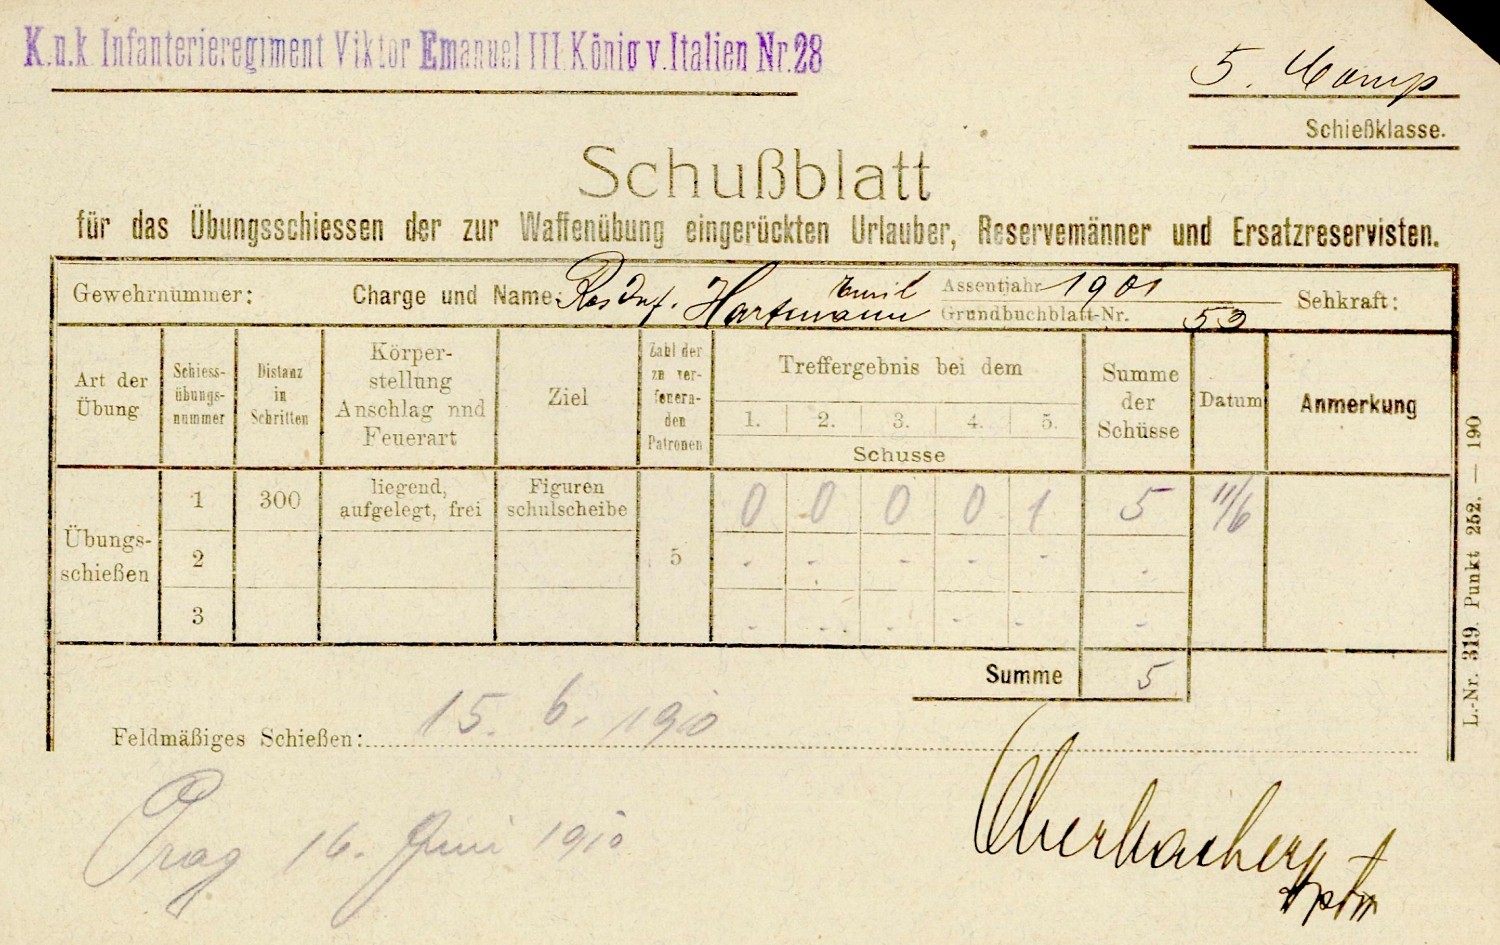 K.u.k Infanterieregiment Viktor Emanuel III. König v. Italien Nr. 28
5. Komp
Schießklasse.
Schußblatt
für das Übungsschiessen der zur Waffenübung eingerückten Urlauber, Reservemänner und Ersatzreservisten.
Gewehrnummer: Charge und Name: Res Inf. Hartmann Emil Assentjahr 1901 Sehkraft:
Grundbuchblatt-Nr. 53
Art der Übung
Schiess-übungs-nummer
Distanz in Schritten
Körper-stellung Anschlag nnd Feuerart
Ziel
Zahl der zu ver-feuern-den Patronen
Treffergebnis bei dem
1. 2. 3. 4. 5.
Schusse
Summe der Schüsse
Datum
Anmerkung
Übungs-schießen
1 300 liegend, aufgelegt, frei Figuren schulscheibe 0 0 0 0 1 5 11/6
2 5 - - - - - -
3 - - - - - -
Summe 5
Feldmäßiges Schießen: 15. 6. 1910
Prag 16. Juni 1910
Oberbacherr
Hptm
L.-Nr. 319. Punkt 252. — 190